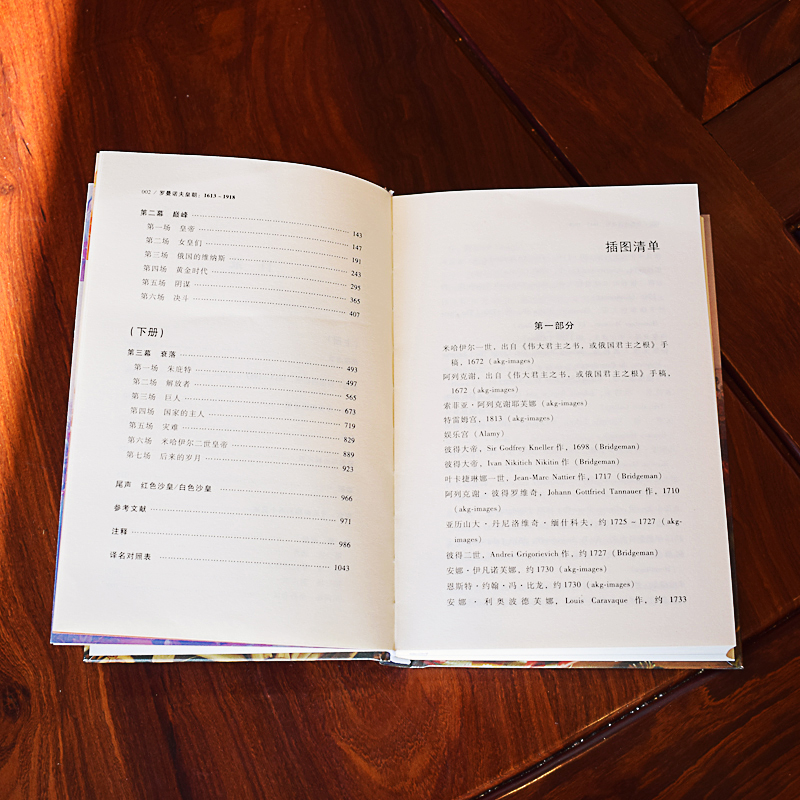 002 / 罗曼诺夫皇朝：1613－1918
第二幕 巅峰 143
第一场 皇帝 147
第二场 女皇们 191
第三场 俄国的维纳斯 243
第四场 黄金时代 295
第五场 阴谋 365
第六场 决斗 407
（下册）
第三幕 衰落 493
第一场 朱庇特 497
第二场 解放者 565
第三场 巨人 673
第四场 国家的主人 719
第五场 灾难 829
第六场 米哈伊尔二世皇帝 889
第七场 后来的岁月 923
尾声 红色沙皇/白色沙皇 966
参考文献 971
注释 986
译名对照表 1043
插图清单
第一部分
米哈伊尔一世，出自《伟大君主之书，或俄国君主之根》手
稿，1672（akg-images）
阿列克谢，出自《伟大君主之书，或俄国君主之根》手稿，
1672（akg-images）
索菲亚·阿列克谢耶芙娜（akg-images）
特雷姆宫，1813（akg-images）
娱乐宫（Alamy）
彼得大帝，Sir Godfrey Kneller 作，1698（Bridgeman）
彼得大帝，Ivan Nikitich Nikitin 作（Bridgeman）
叶卡捷琳娜一世，Jean-Marc Nattier 作，1717（Bridgeman）
阿列克谢·彼得罗维奇，Johann Gottfried Tannauer 作，1710
（akg-images）
亚历山大·丹尼洛维奇·缅什科夫，约 1725－1727（akg-
images）
彼得二世，Andrei Grigorievich 作，约 1727（Bridgeman）
安娜·伊凡诺芙娜，约 1730（akg-images）
恩斯特·约翰·冯·比龙，约 1730（akg-images）
安娜·利奥波德芙娜，Louis Caravaque 作，约 1733